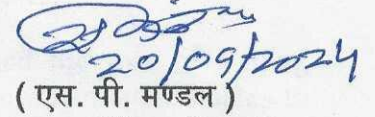 20/09/2024
( एस. पी. मण्डल )